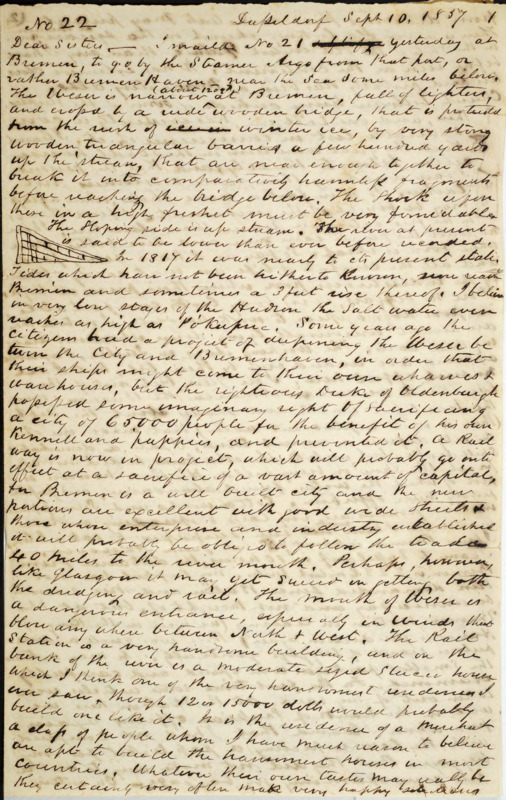 No 22 Dusseldorf Sept 10, 1857 1
Dear Sisters — I mailed No 21 yesterday at
Bremen, to go by the Steamer Argo from that port, or
rather Bremen Haven near the Sea some miles below.
The Weser is narrow (about 120 yds) at Bremen, full of lighters,
and crossed by a wide wooden bridge, that is protected
from the rush of winter ice, by very strong
wooden triangular barriers a few hundred yards
up the stream, that are near enough together to
break it into comparatively harmless fragments
before reaching the bridge below. The Shock upon
these in a high freshet must be very formidable
The Sloping side is up stream. The river at present
is said to be lower than ever before recorded.
In 1817 it was nearly to its present state.
Tides which have not been hitherto known, now reach
Bremen and sometimes a 3 foot rise thereof. I believe
in very low stages of the Hudson the Salt water even
reaches as high as Pokepsie. Some years ago the
citizens had a project of deepening the Weser be
tween the City and Bremenhaven, in order that
their ships might come to their own wharves &
warehouses, but the righteous Duke of Oldenburgh
possessed some imaginary right of Sacrificing
a city of 65000 people for the benefit of his own
Kennell and puppies, and prevented it. A Rail
way is now in project, which will probably go into
effect at a sacrifice of a vast amount of capital,
for Bremen is a well built city and the new
portions are excellent with good wide Streets &
those whose enterprise and industry established
it will probably be obliged to follow the trade
40 miles to the river mouth. Perhaps, however,
like Glasgow it may yet Succeed in getting both
the dredging and rail. The mouth of Weser is
a dangerous entrance, especially in winds that
blow any where between North & West. The Rail
Station is a very handsome building, and on the
bank of the river is a moderate sized Stucco house
which I think one of the very handsomest residences I
ever saw, though 12 or 15000 dolls would probably
build one like it. It is the residence of a Merchant
a class of people whom I have much reason to believe
are apt to build the handsomest houses in most
countries. Whatever their own tastes may well be
they certainly very often make very happy selections